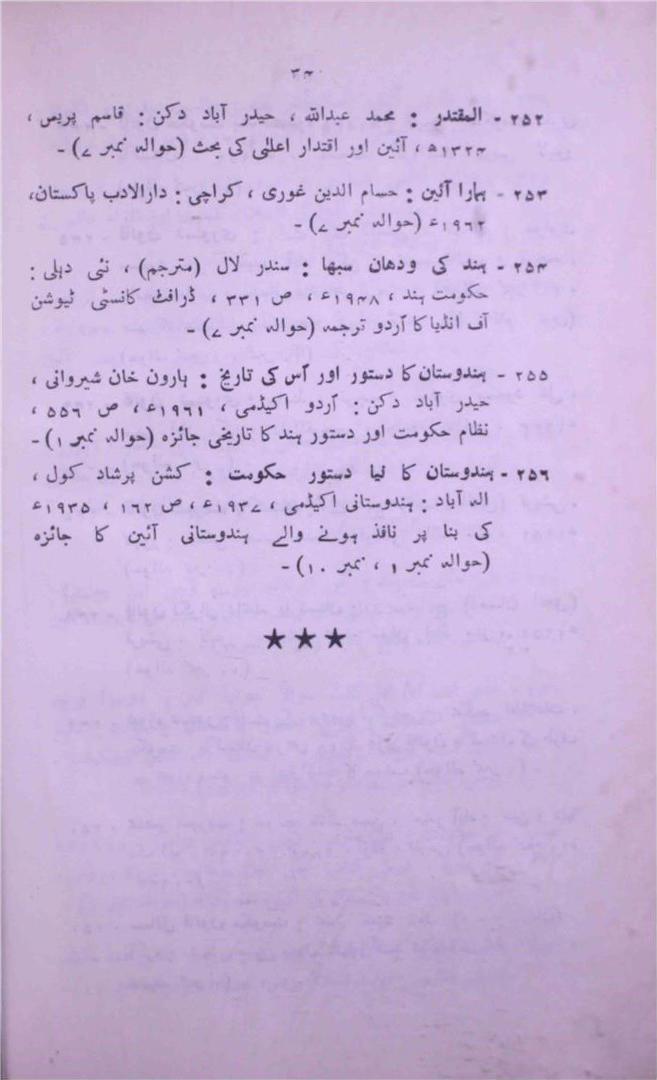 ۳۴۰
۲۵۲ - المقتدر : محمد عبداللہ ، حیدر آباد دکن : قاسم پریس ،
۱۳۲۴ھ ، آئین اور اقتدار اعلیٰ کی بحث (حوالہ نمبر ۷) -
۲۵۳ - ہمارا آئین : حسام الدین غوری ، کراچی : دارالادب پاکستان،
۱۹۶۲ء (حوالہ نمبر ۷) -
۲۵۴ - ہند کی ودھان سبھا : سندر لال (مترجم) ، نئی دہلی :
حکومت ہند ، ۱۹۴۸ء ، ص ۳۳۱ ، ڈرافٹ کانسٹی ٹیوشن
آف انڈیا کا اُردو ترجمہ (حوالہ نمبر ۷) -
۲۵۵ - ہندوستان کا دستور اور اُس کی تاریخ : ہارون خان شیروانی ،
حیدر آباد دکن : اُردو اکیڈمی ، ۱۹۶۱ء ، ص ۵۵۶ ،
نظام حکومت اور دستور ہند کا تاریخی جائزہ (حوالہ نمبر ۱) -
۲۵۶ - ہندوستان کا نیا دستور حکومت : کشن پرشاد کول ،
الہ آباد : ہندوستانی اکیڈمی ، ۱۹۳۷ء ، ص ۱۶۲ ، ۱۹۳۵ء
کی بنا پر نافذ ہونے والے ہندوستانی آئین کا جائزہ
(حوالہ نمبر ۱ ، نمبر ۱۰) -
★ ★ ★